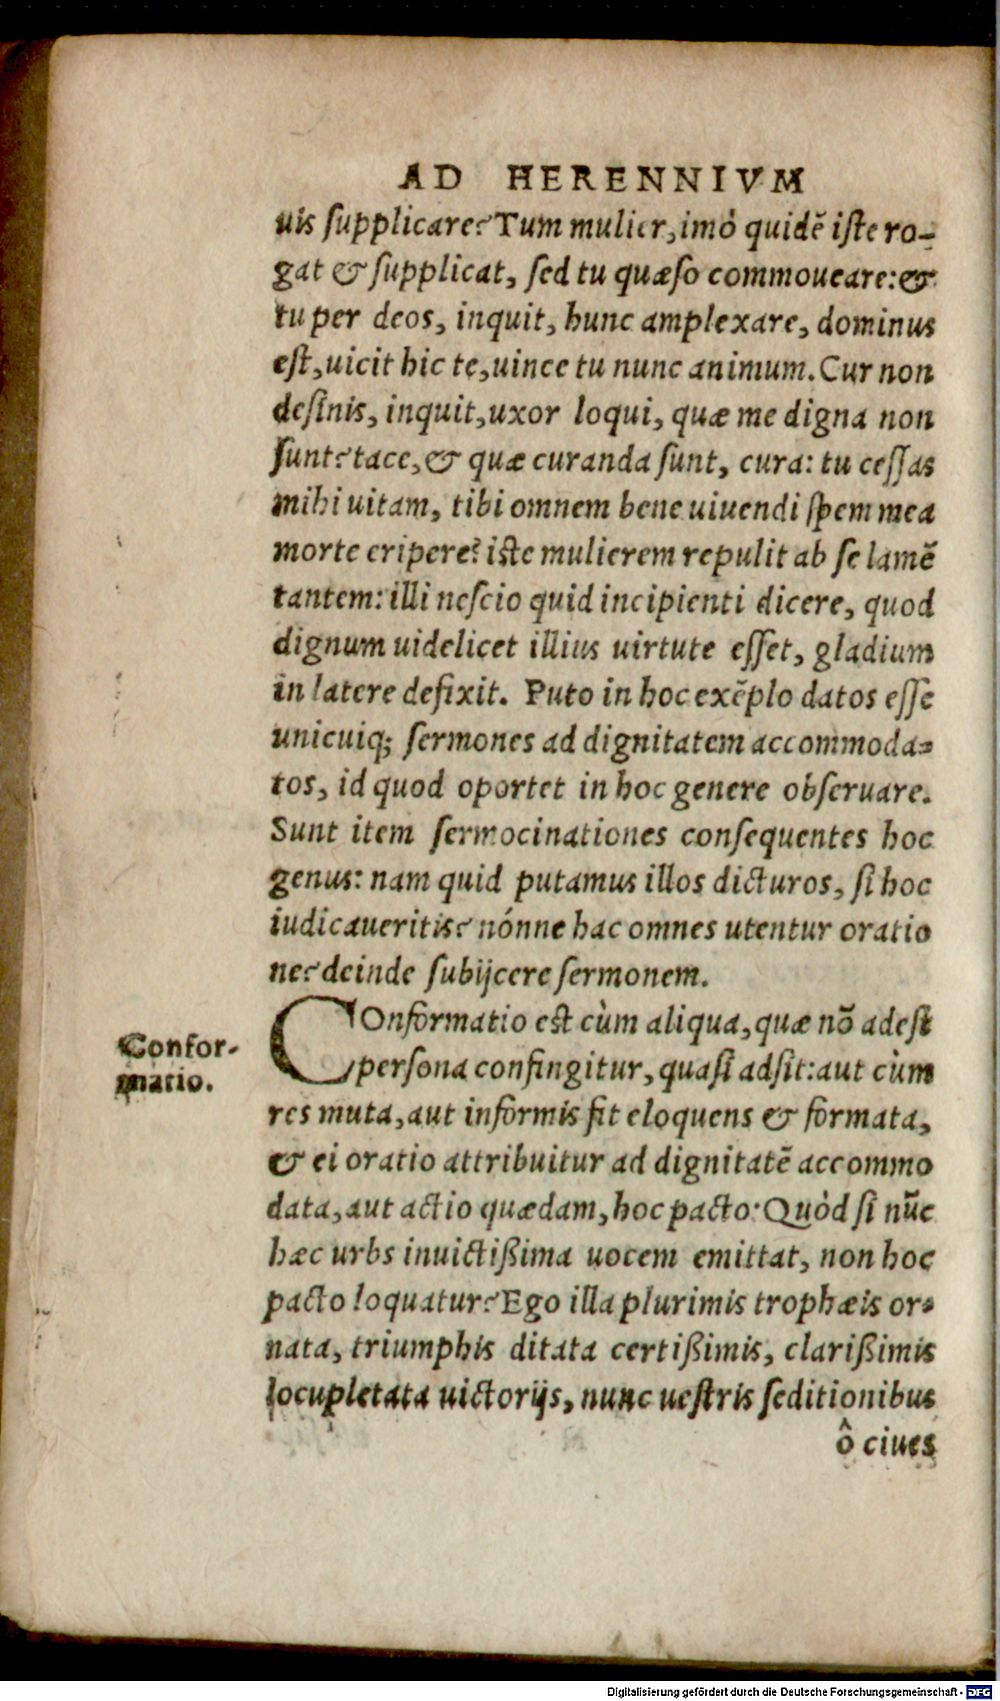 AD HERENNIVM
uis ſupplicare? Tum mulier, imò quidē iſte ro-
gat & ſupplicat, ſed tu quæſo commoueare: &
tu per deos, inquit, hunc amplexare, dominus
eſt, uicit hic te, uince tu nunc animum. Cur non
deſinis, inquit, uxor loqui, quæ me digna non
ſunt? tace, & quæ curanda ſunt, cura: tu ceſſas
mihi uitam, tibi omnem bene uiuendi ſpem mea
morte eripere? iſte mulierem repulit ab ſe lamē
tantem: illi neſcio quid incipienti dicere, quod
dignum uidelicet illius uirtute eſſet, gladium
in latere defixit. Puto in hoc exēplo datos eſſe
unicuiq; ſermones ad dignitatem accommoda-
tos, id quod oportet in hoc genere obſeruare.
Sunt item ſermocinationes conſequentes hoc
genus: nam quid putamus illos dicturos, ſi hoc
iudicaueritis? nónne hac omnes utentur oratio
ne? deinde ſubijcere ſermonem.
Confor-
matio.
COnformatio eſt cùm aliqua, quæ nō adeſt
perſona confingitur, quaſi adſit: aut cùm
res muta, aut informis fit eloquens & formata,
& ei oratio attribuitur ad dignitatē accommo
data, aut actio quædam, hoc pacto: Quòd ſi nūc
hæc urbs inuictißima uocem emittat, non hoc
pacto loquatur? Ego illa plurimis trophæis or-
nata, triumphis ditata certißimis, clarißimis
locupletata uictorijs, nunc ueſtris ſeditionibus
ô ciues
Digitalisierung gefördert durch die Deutsche Forschungsgemeinschaft - DFG